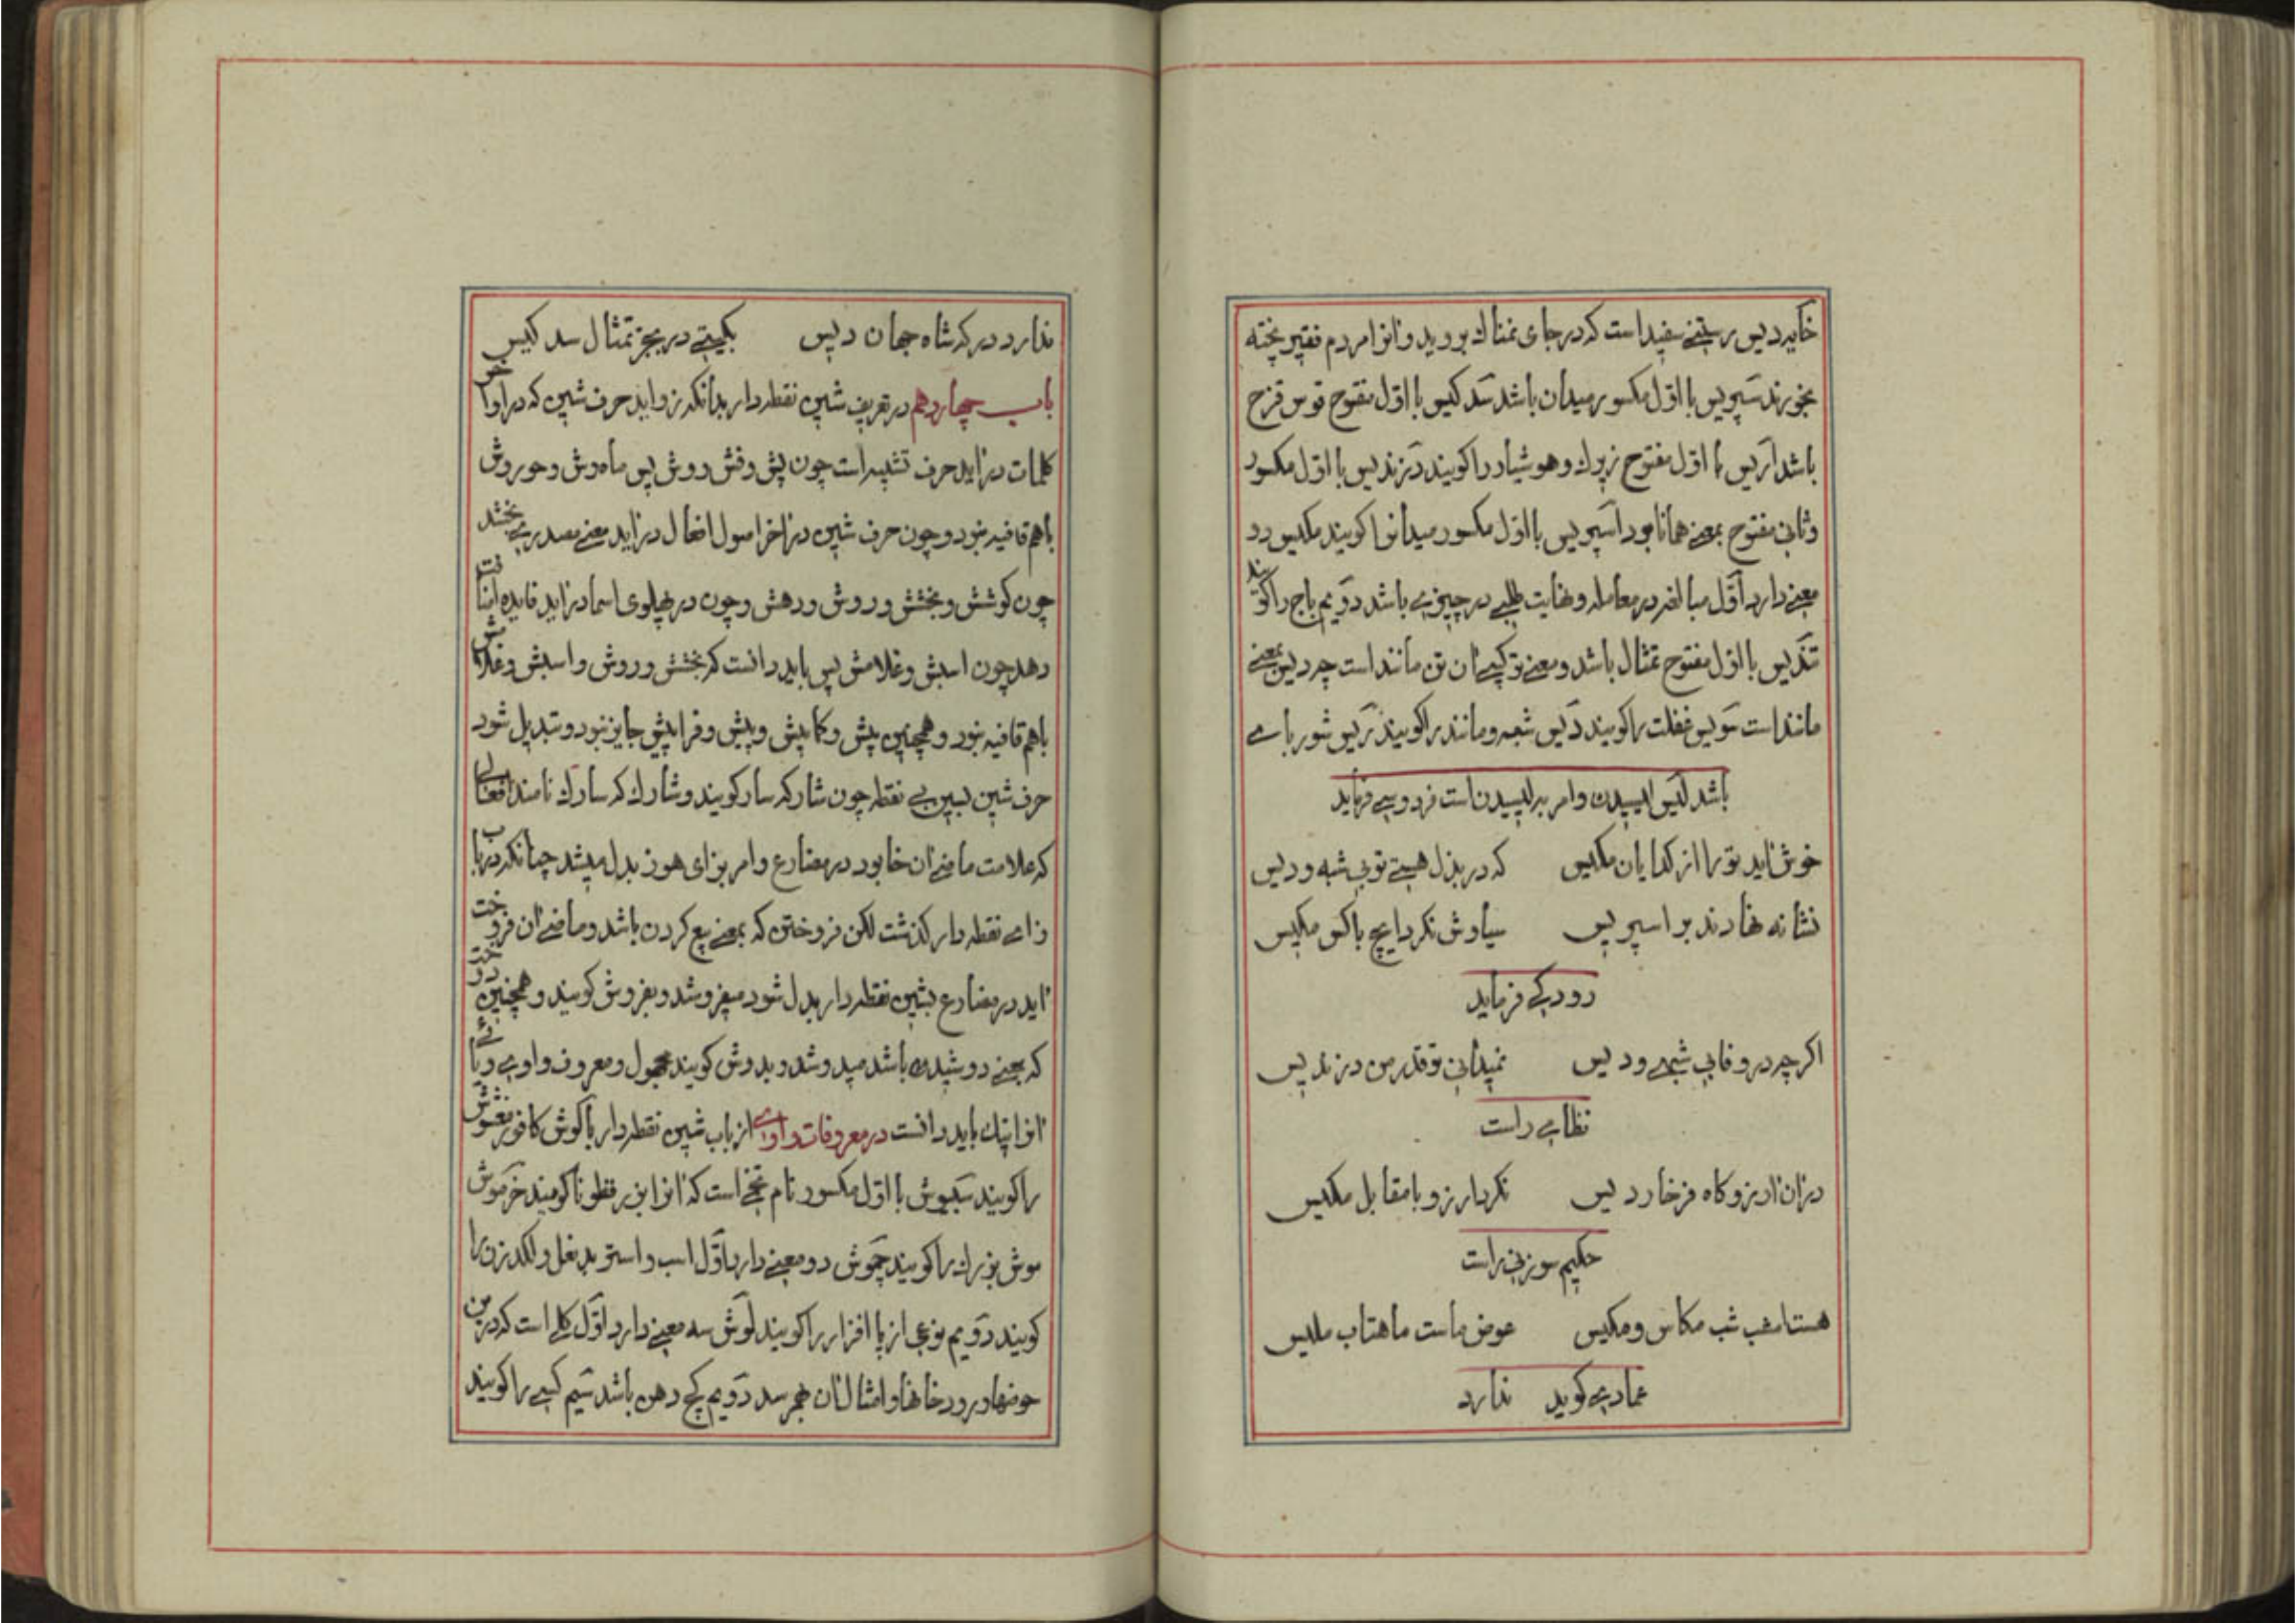 خایه‌دیس رستنی سفید است که در جای نمناك بروید و انرا مردم فقیر پخته
بخورند سپریس با اوّل مکسور میدان باشد سَدکیس با اوّل مفتوح قوس قزح
باشد آریس با اوّل مفتوح زیرك و هوشیار را کویند دَرزندیس با اوّل مکسور
وثانی مفتوح بمعنی همانا بود اسپریس با اوّل مکسور میدانرا کویند مکیس دو
معنی دارد اوّل مبالغه در معامله و نهایت طلبی در چیزی باشد دوّیم باج را کویند
تندیس با اوّل مفتوح تمثال باشد و معنی ترکیبی ان تن مانند است چه دیس بمعنی
مانند است سَویس غفلت را کویند دَیس شبه و مانند را کویند رَیس شوربای
باشد لَیس لیسیدن و امر به لیسیدن است فردوسی فرماید
خوش اید تو را از کدایان مکیس که در بذل هستی تو بی شبه و دیس
نشانه نهادند بر اسپریس سیاوش نکرد ایچ با کس مکیس
رودکی فرماید
اکرچه در وفا بی شبهی و دیس نمیدانی تو قدر من درندیس
نظامی راست
دران ارزوکاه فرخار دیس نکرد ارزو با مقابل مکیس
حکیم سوزنی راست
هست امشب شب مکاس و مکیس عوض ماست ماهتاب ملیس
عمادی کوید ندارد
ندارد درکه شاه جهان دیس بکیتی در بجز تمثال سدکیس
باب چهاردهم در تعریف شین نقطه‌دار بدانکه زواید حرف شین که در اواخر
کلمات دراید حرف تشبیه است چون پش و فش و وش پس ماه‌وش و حوروش
باهم قافیه نبود و چون حرف شین در اخر اصول افعال دراید معنی مصدر می‌بخشد
چون کوشش و بخشش و روش و دهش و چون در پهلوی اسما دراید فایده اضافت
دهد چون اسبش و غلامش پس باید دانست که بخشش و روش و اسبش و غلامش
باهم قافیه نبود و همچنین پیش و کاپیش و پیش و فراپیش جایز نبود و تبدیل شود
حرف شین بسین بی نقطه چون شارکه سار کویند و شارك که سارك نامند افعالی
که علامت ماضی ان خا بود در مضارع و امر بزای هوز بدل میشد چنانکه در باب
زای نقطه‌دار کذشت لکن فروختن که بمعنی بیع کردن باشد و ماضی ان فروخت
اید در مضارع بشین نقطه‌دار بدل شود میفروشد و بفروش کویند و همچنین دوخت
که بمعنی دوشیدن باشد میدوشد و بدوش کویند مجهول و معروف واوی و یائی
انرا نیك باید دانست در معروفات واوی از باب شین نقطه‌دار باکوش کافور مغشوش
را کویند سَبیوش با اوّل مکسور نام تخمی است که انرا بزرقطونا کویند خَرموش
موش بزرك را کویند چَموش دو معنی دارد اوّل اسب و استر بدنعل و لکدزن را
کویند دوّیم نوعی از پا افزار را کویند لَوش سه معنی دارد اوّل کلی است که در بن
حوضها و رودخانها و امثال ان بهم رسد دوّیم کج دهن باشد سیّم کسی را کویند